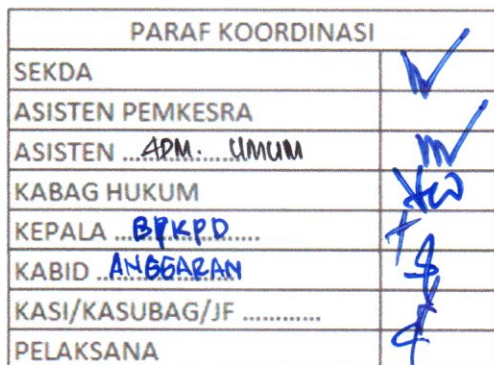 PARAF KOORDINASI
SEKDA
ASISTEN PEMKESRA
ASISTEN ...ADM. UMUM
KABAG HUKUM
KEPALA ...BPKPD.....
KABID ...ANGGARAN
KASI/KASUBAG/JF ............
PELAKSANA